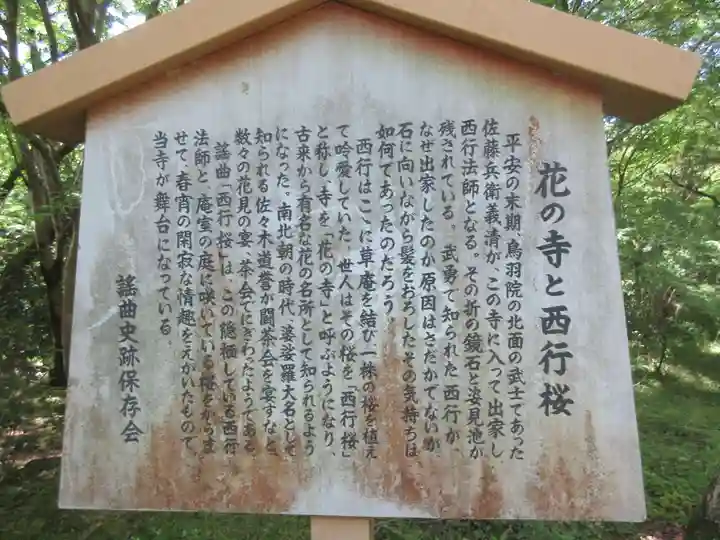 花の寺と西行桜
平安の末期、鳥羽院の北面の武士であった
佐藤兵衛義清が、この寺に入って出家し
西行法師となる。その折の鏡石と姿見池が
残されている。武勇で知られた西行が、
なぜ出家したのか原因はさだかでないが
石に向いながら髪をおろしたその気持ちは
如何であったのだろう。
西行はここに草庵を結び一株の桜を植え
て吟愛していた。世人はその桜を「西行桜」
と称し、寺を「花の寺」と呼ぶようになり、
古来から有名な花の名所として知られるよう
になった。南北朝の時代、婆娑羅大名として
知られる佐々木道誉が闘茶会を宴すなど、
数々の花見の宴、茶会でにぎわったようである。
謡曲「西行桜」は、この隠栖している西行
法師と、庵室の庭に咲いている桜をからま
せて、春宵の閑寂な情趣をえがいたもので、
当寺が舞台になっている。
謡曲史跡保存会